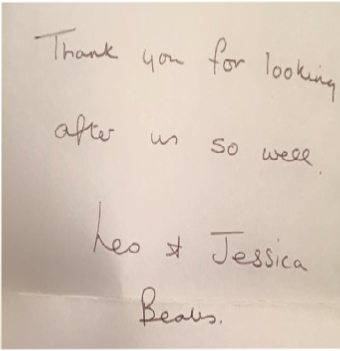 Thank you for looking
after us so well.
Leo & Jessica
Beales.